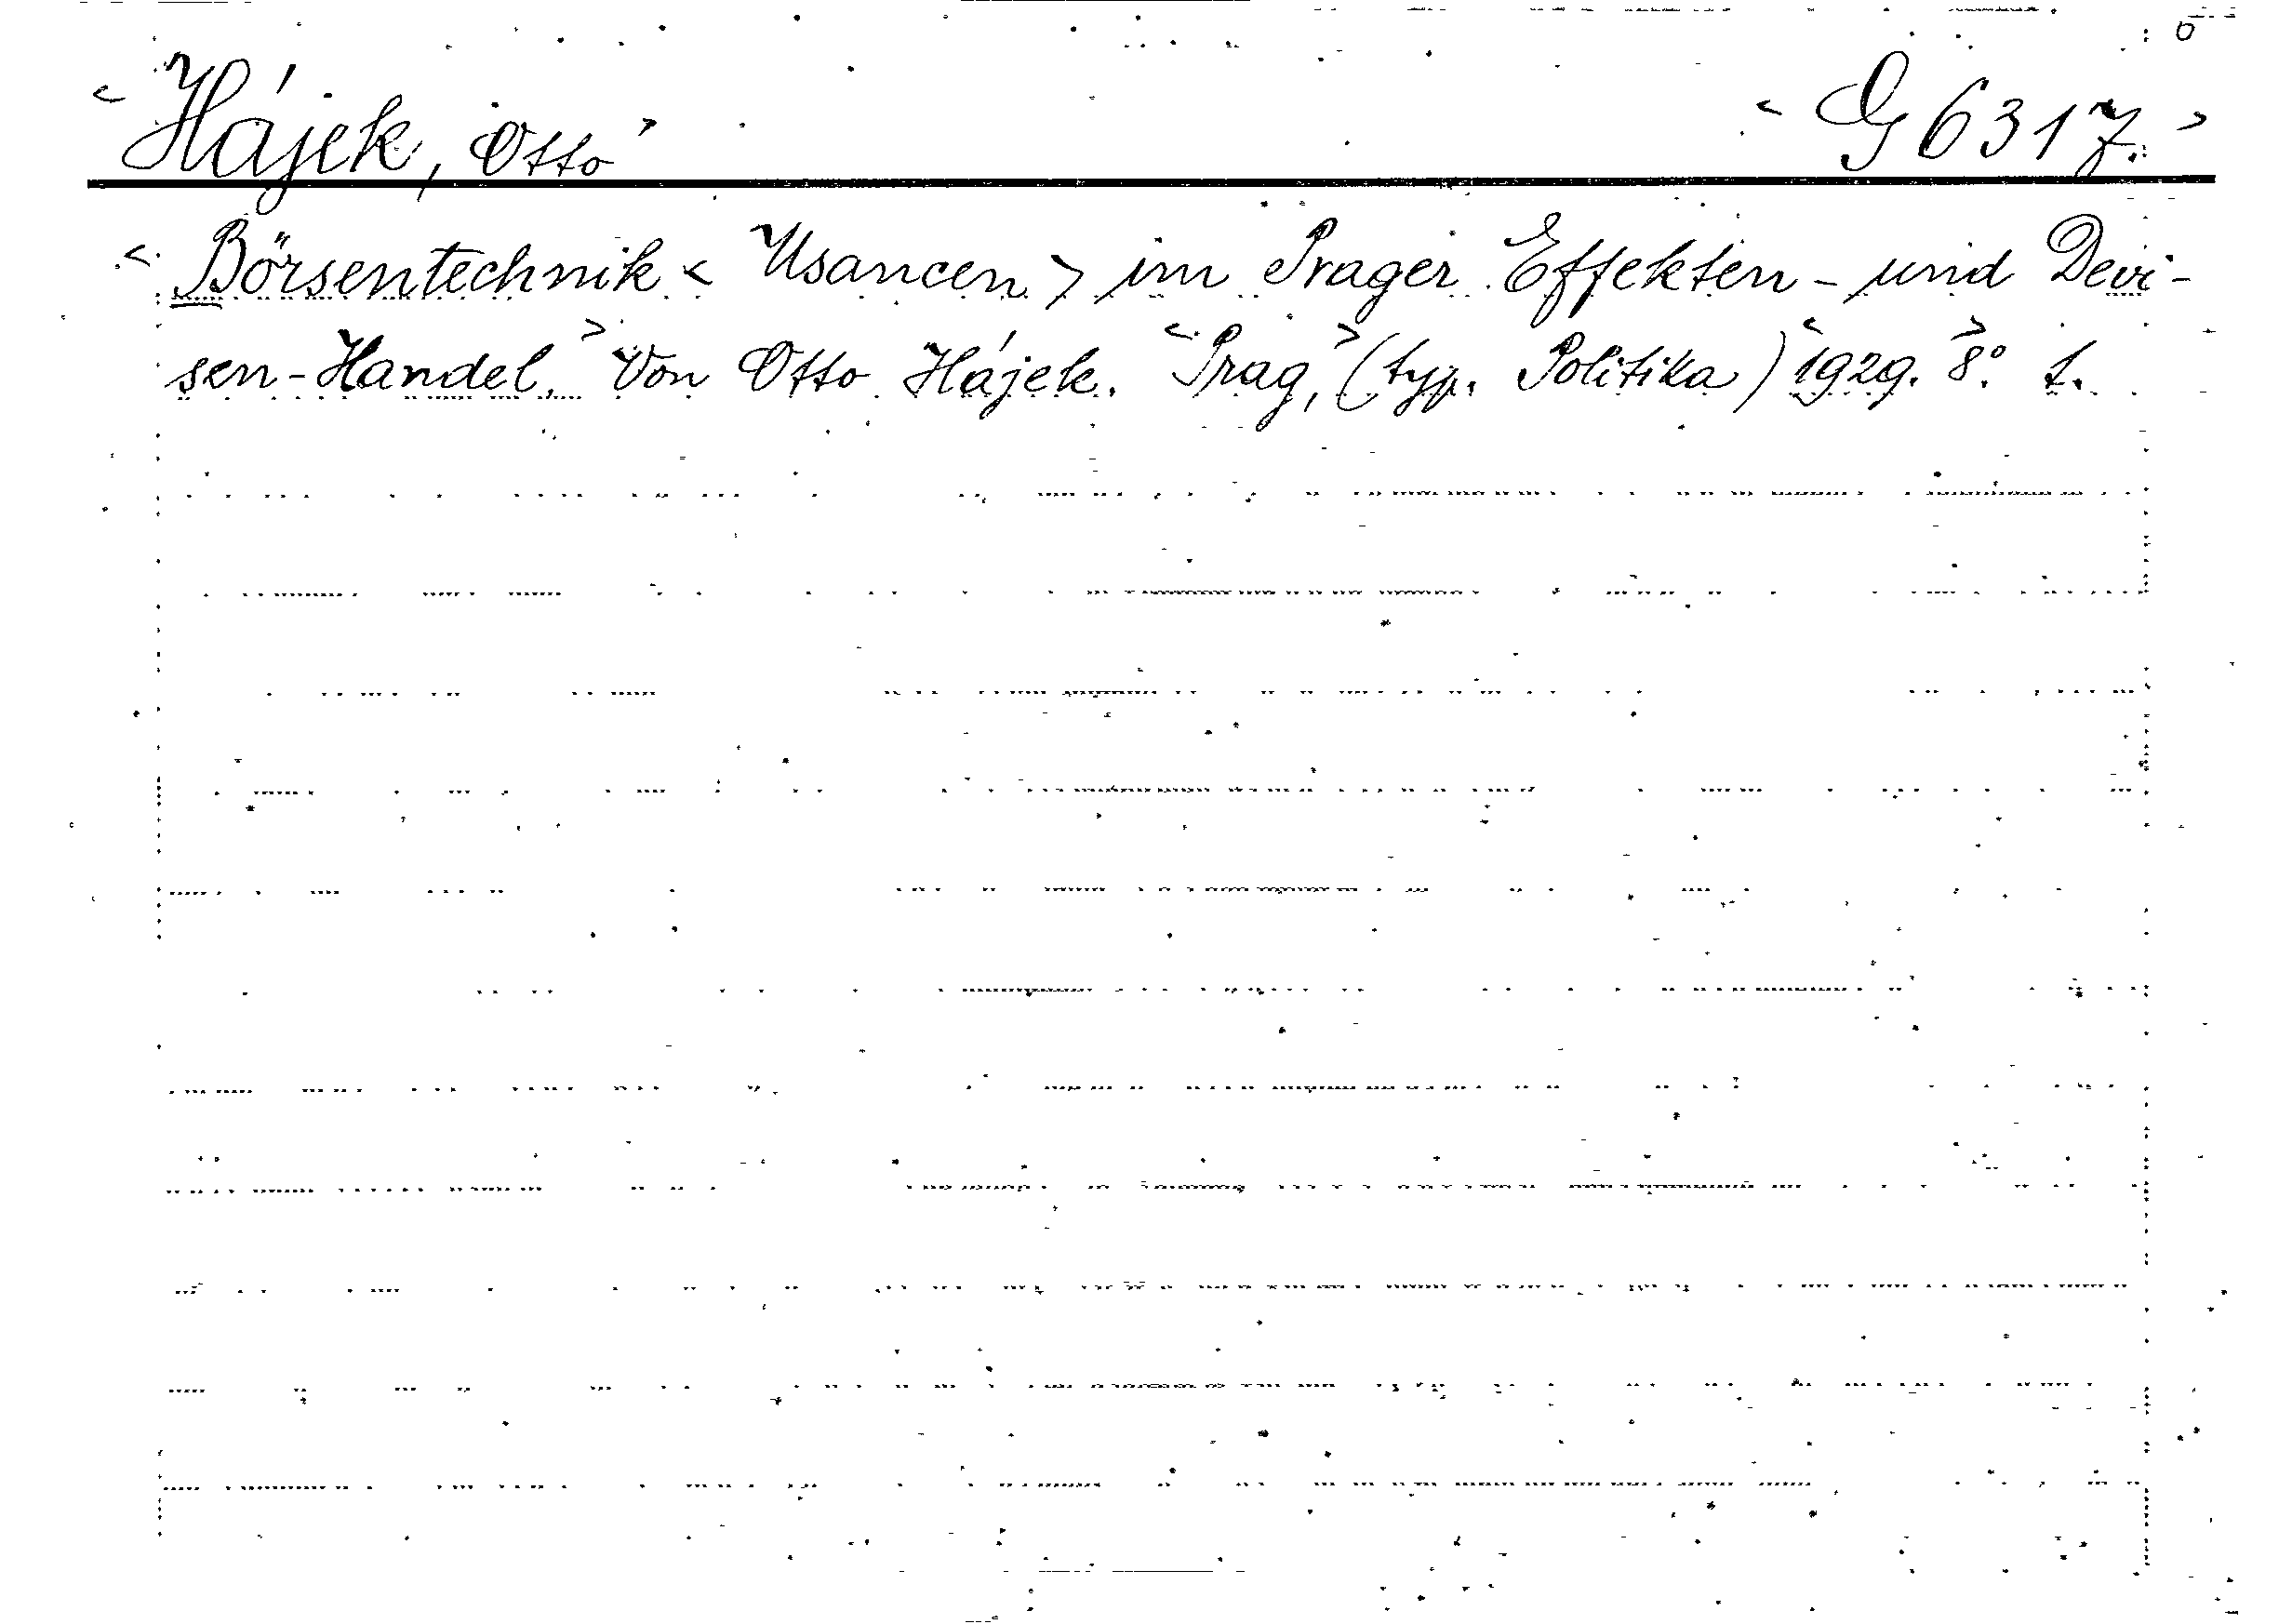 < Hájek, Otto > < G 6317. >
< Börsentechnik < Usancen > im Prager Effekten - und Devi-
sen - Handel. > Von Otto Hájek. < Prag, > (typ. Politika) < 1929. > 8°. 1.